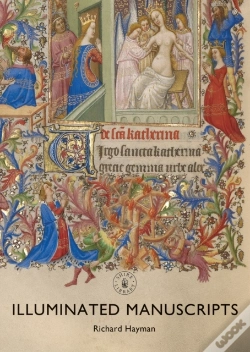 de sca katherina
Virgo sancta katherina
grecie gemma urbe alex
SHIRE
LIBRARY
ILLUMINATED MANUSCRIPTS
Richard Hayman
wook